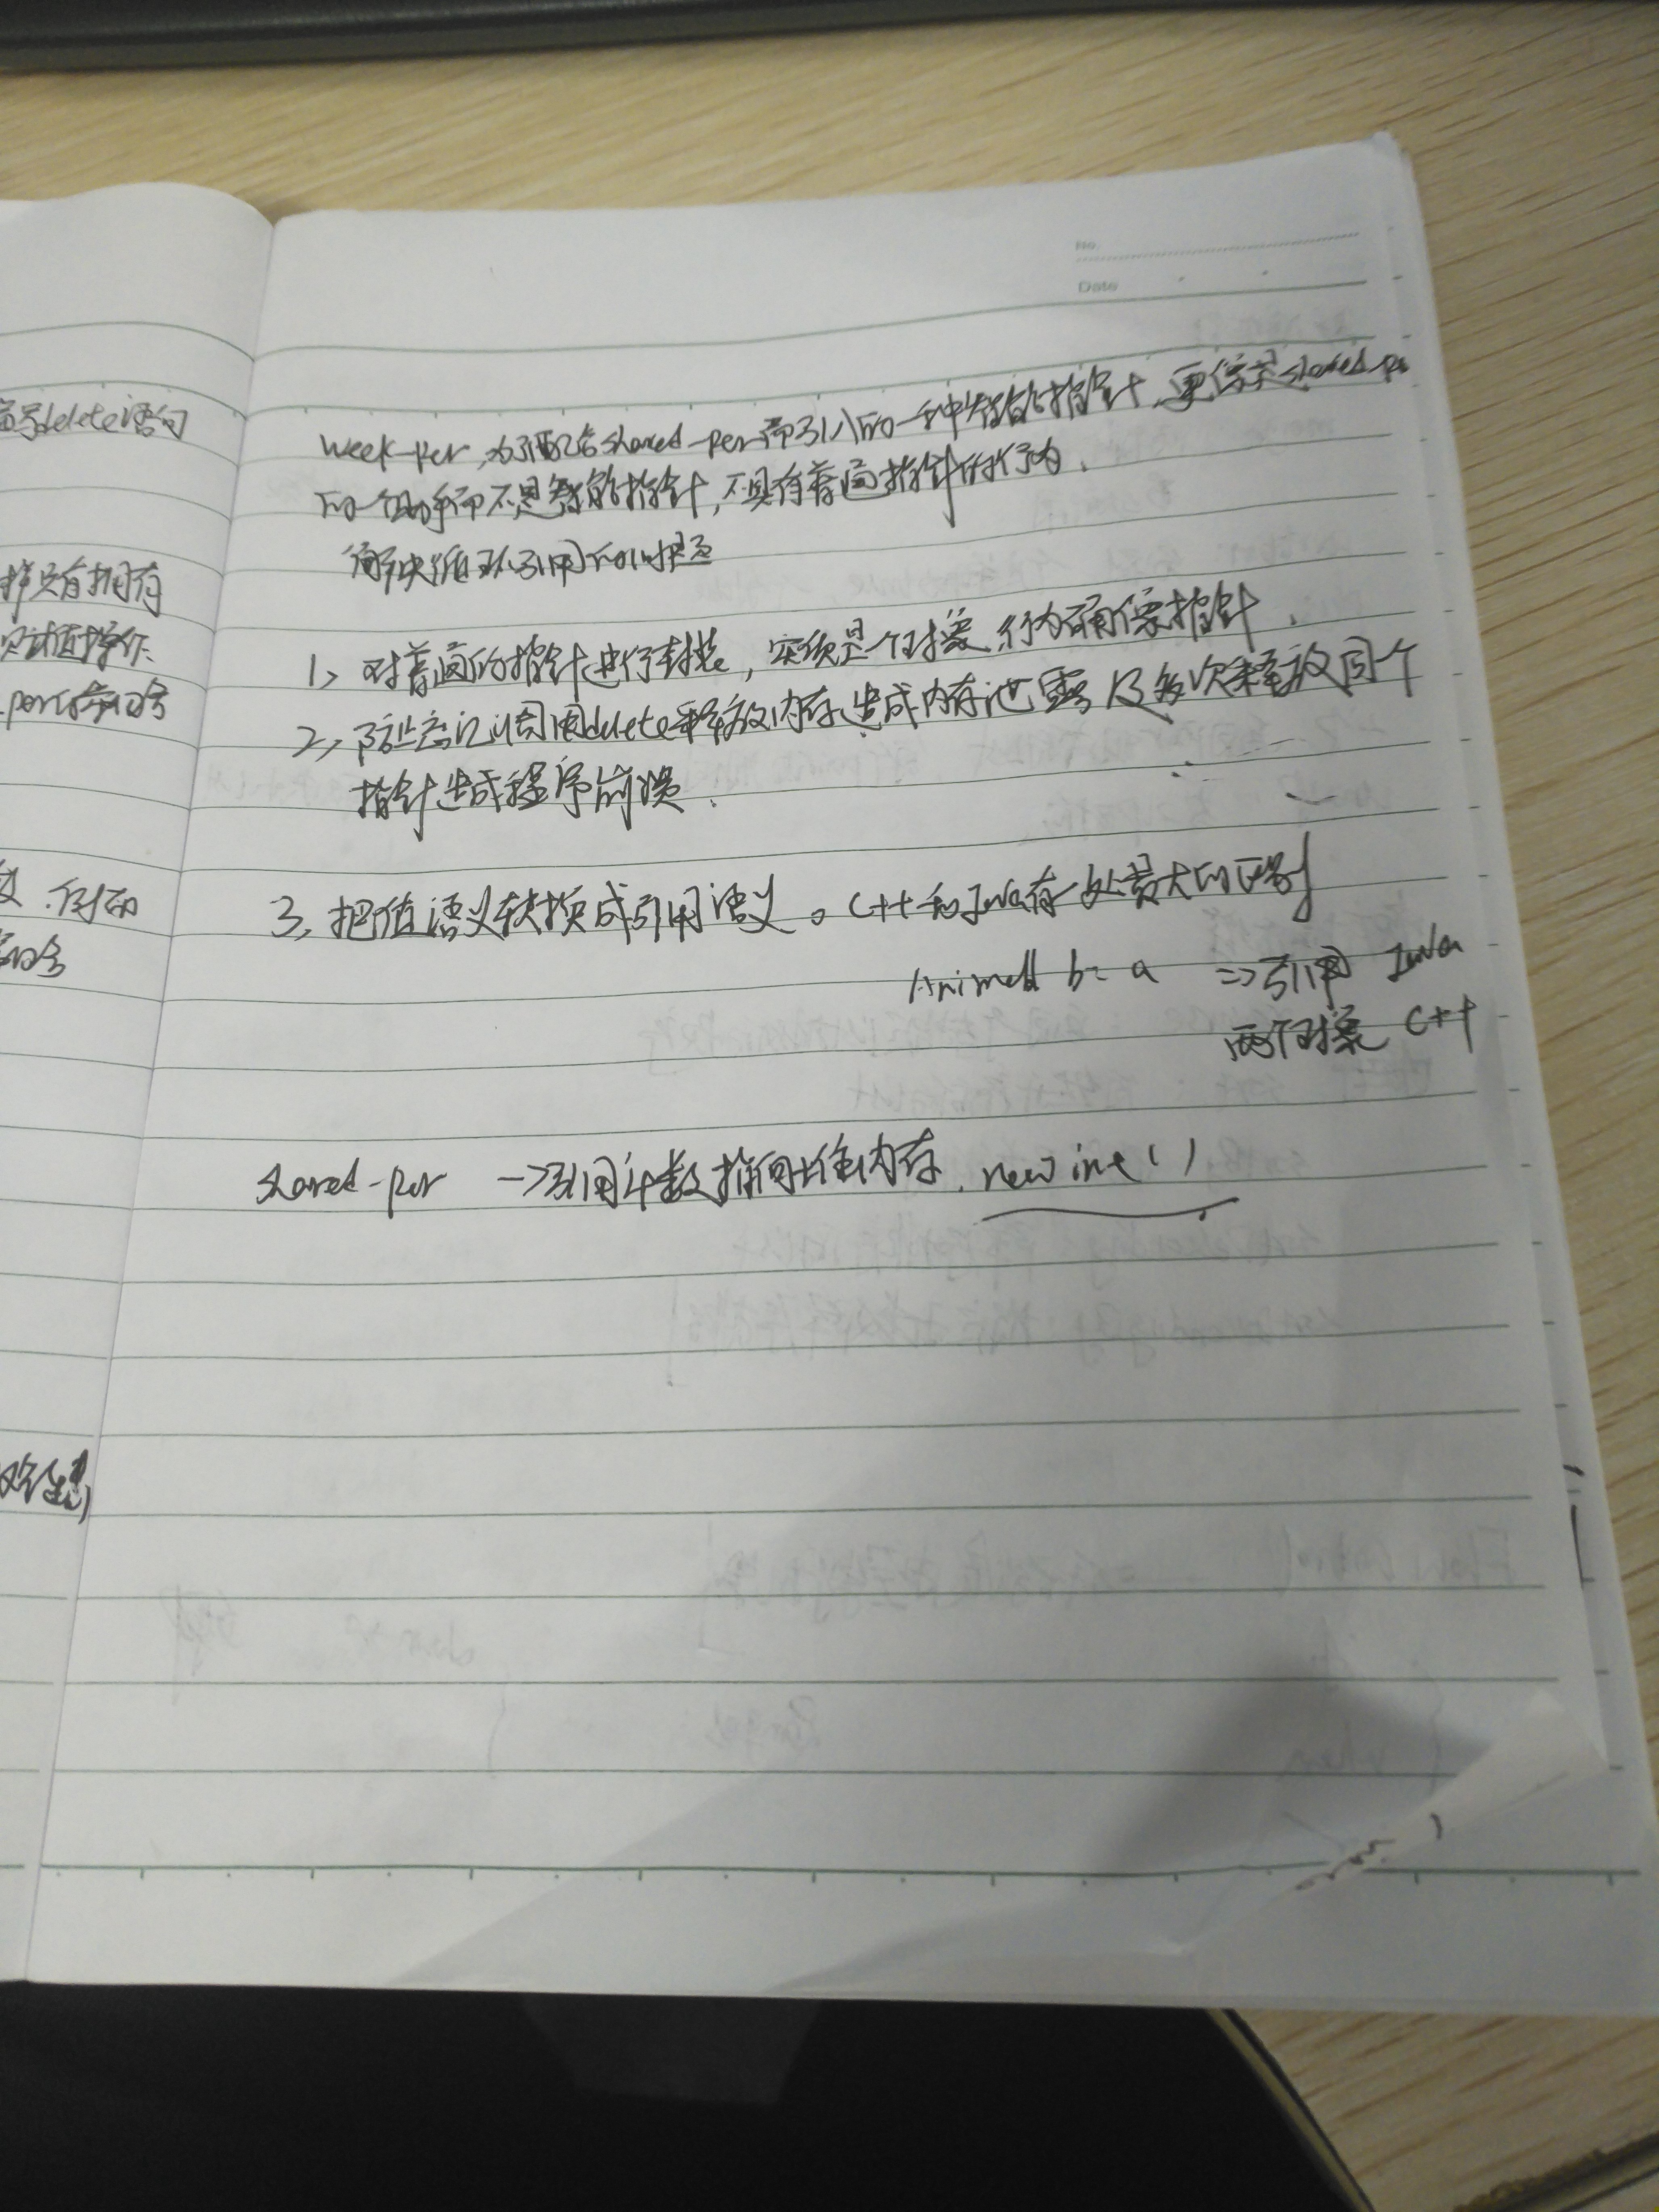 No.
Date
week-ptr,为了配合shared-ptr而引入的一种智能指针,更像是shared-ptr
的一个助手而不是智能指针,不具有普通指针的行为.
解决循环引用的问题
1、对普通的指针进行封装,实质是个对象,行为确像指针.
2、防止忘记调用delete释放内存造成内存泄露及多次释放同一个
指针造成程序崩溃.
3、把值语义转换成引用语义。C++和Java有一处最大的区别
Animal b = a => 引用 Java
两个对象 C++
shared-ptr -> 引用计数指向堆内存. new int()
delete语句
只有拥有